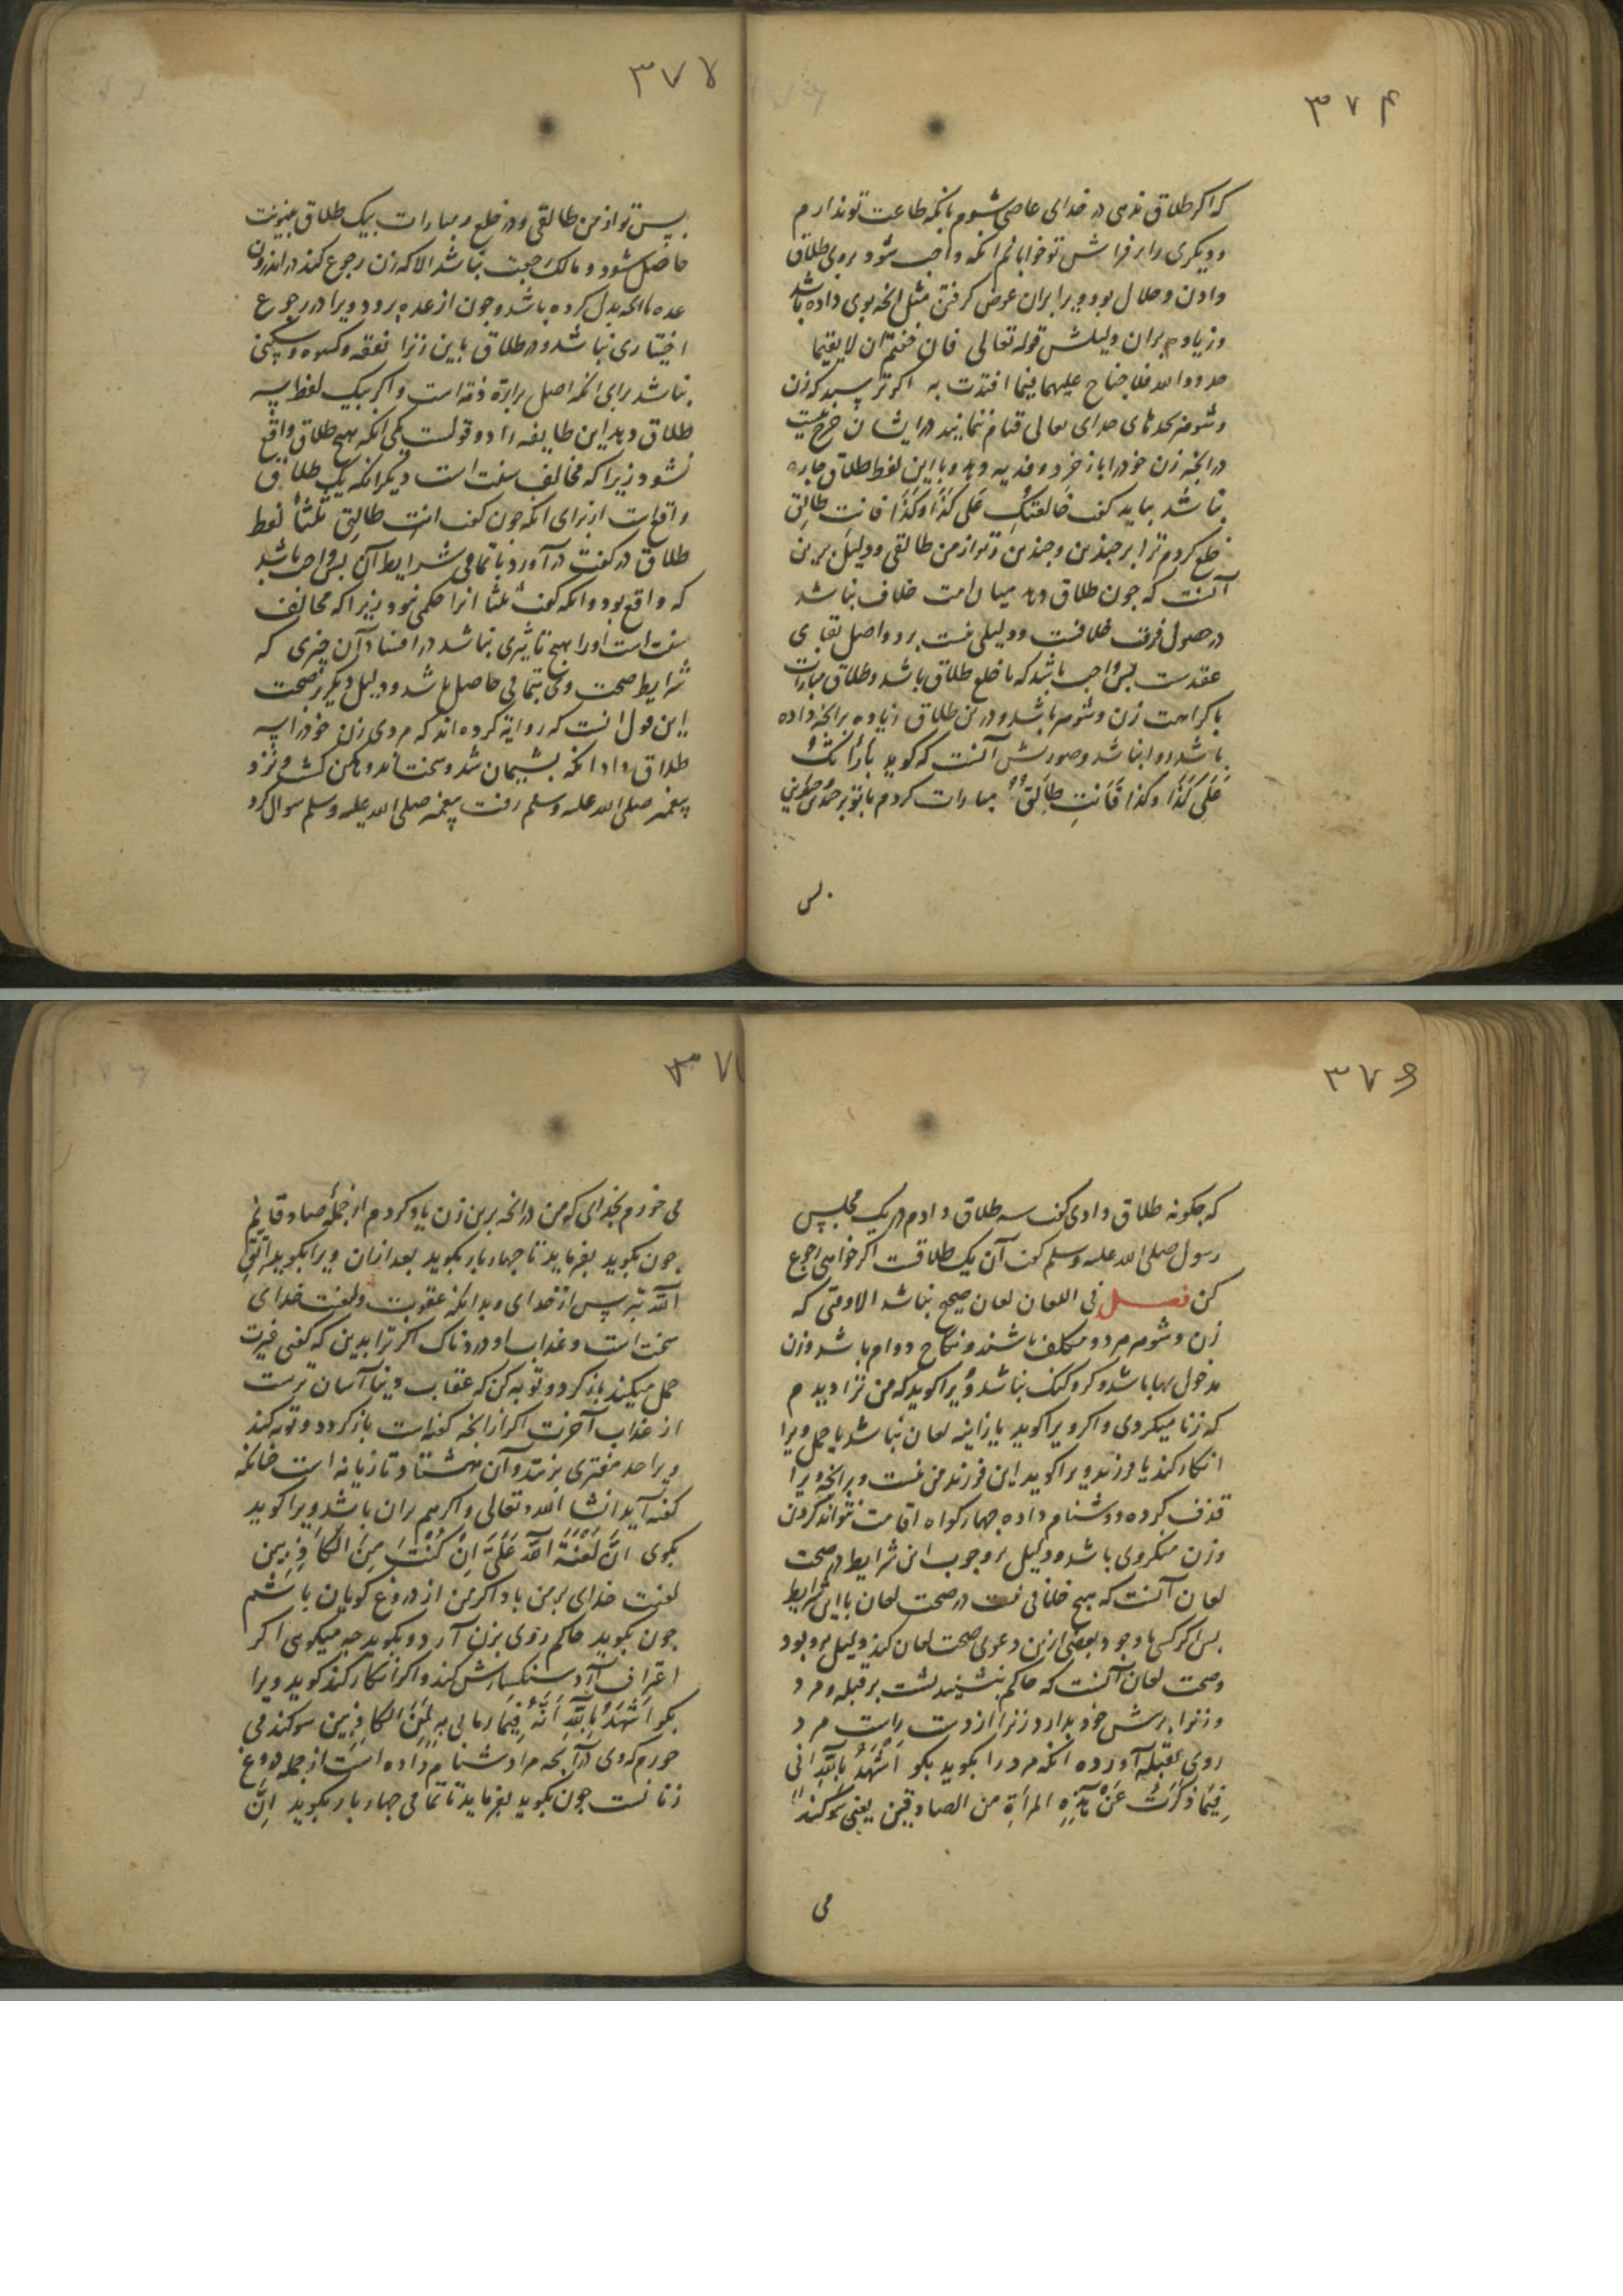 ۳۷۴
که اکر طلاق ندهی در خدای عاصی شوم بانکه طاعت تو ندارم
و دیکری را بر فراش تو خوابانم انکه واجب شود بروی طلاق
دادن و حلال بود ویرا بران عوض کرفتن مثل انچه بوی داده باشد
و زیاده بران دلیلش قوله تعالی فان خفتم ان لا یقیما
حدود الله فلا جناح علیهما فیما افتدت به اکر ترسید که زن
و شوهر بحدهای خدای تعالی قیام ننمایند در ایشان حرج نیست
در انچه زن خود را باز خرد و فدیه دهد و با این لفظ طلاق چاره
نباشد بباید کفت خالعتک علی کذا و کذا فانت طالق
خلع کردم ترا بر چندین و چندین و تو از من طالقی و دلیل برین
آنست که چون طلاق دهد میان امت خلاف نباشد
در حصول فرقت خلافست و دلیلی نیست برو و اصل بقای
عقدست پس واجب باشد که با خلع طلاق باشد و طلاق مبارات
با کراهت زن و شوهر باشد و درین طلاق زیاده بر انچه داده
باشد روا نباشد و صورتش آنست که کوید بارأتک
علی کذا و کذا فانت طالق مبارات کردم با تو بر چندین
پس
۳۷۵
پس تو از من طالقی و در خلع و مبارات بیک طلاق بینونت
حاصل شود و مالک رجعت نباشد الا که زن رجوع کند در اندرون
عده باانچه بدل کرده باشد و چون از عده برود ویرا در رجوع
اختیاری نباشد و در طلاق باین زنرا نفقه و کسوه و سکنی
نباشد برای انکه اصل براءة ذمه است و اکر بیک لفظ سه
طلاق دهد این طایفه را دو قولست یکی انکه هیچ طلاق واقع
نشود زیرا که مخالف سنت است دیکر انکه یک طلاق
واقع است از برای انکه چون کفت انت طالق ثلثا لفظ
طلاق در کفت در آورد با تمامی شرایط آن پس واجب باشد
که واقع بود و انکه کفت ثلثا انرا حکمی نبود زیرا که مخالف
سنت است و اورا هیچ تاثیری نباشد در افساد آن چیزی که
شرایط صحت وی بتمامی حاصل باشد و دلیل دیکر بر صحت
این قول انست که روایة کرده اند که مردی زن خود را سه
طلاق داد انکه پشیمان شد و سخت اندوهکین کشت و نزد
پیغمبر صلی الله علیه وسلم رفت پیغمبر صلی الله علیه وسلم سوال کرد
۳۷۶
که چکونه طلاق دادی کفت سه طلاق دادم در یک مجلس
رسول صلی الله علیه وسلم کفت آن یک طلاقست اکر خواهی رجوع
کن فصل فی اللعان لعان صحیح نباشد الا وقتی که
زن و شوهر هر دو مکلف باشند و نکاح دوام باشد و زن
مدخول بها باشد و کر و کنک نباشد و ویرا کوید که من ترا دیدم
که زنا میکردی و اکر ویرا کوید یا زانیه لعان نباشد یا حمل ویرا
انکار کند یا فرزند ویرا کوید این فرزند من نیست و بر انچه ویرا
قذف کرده و دشنام داده چهار کواه اقامت نتواند کردن
و زن منکر وی باشد و دلیل بر وجوب این شرایط در صحت
لعان آنست که هیچ خلافی نیست در صحت لعان با این شرایط
پس اکر کسی با وجود بعضی ازین دعوی صحت لعان کند دلیل برو بود
و صحت لعان آنست که حاکم بنشیند پشت بر قبله و مرد
و زنرا پیش خود بدارد زنرا از دست راست مرد
روی بقبله آورده انکه مرد را بکوید بکو اشهد بالله انی
فیما ذکرت عن هذه المرأة من الصادقین یعنی سوکند
می
۳۷۷
می خورم بخدای که من در انچه برین زن یاد کردم از جمله صادقانم
چون بکوید بفرماید تا چهار بار بکوید بعد ازان ویرا بکوید اتق
الله بترس از خدای و بدانکه عقوبت و لعنت خدای
سخت است و عذاب او دردناک اکر ترا بدین که کفتی غیرت
حمل میکند باز کرد و توبه کن که عقاب دنیا آسان ترست
از عذاب آخرت اکر از انچه کفته است باز کردد و توبه کند
ویرا حد مفتری بزنند و آن هشتاد تازیانه است چنانکه
کفته آید انشا الله تعالی و اکر هم بران باشد ویرا کوید
بکوی ان لعنة الله علی ان کنت من الکاذبین
لعنت خدای بر من باد اکر من از دروغ کویان باشم
چون بکوید حاکم روی بزن آرد و بکوید چه میکویی اکر
اعتراف آرد سنکسارش کند و اکر انکار کند کوید ویرا
بکو اشهد بالله انه فیما رمانی به لمن الکاذبین سوکند می
خورم که وی در آنچه مرا دشنام داده است از جمله دروغ
زنانست چون بکوید بفرماید تا تمامی چهار بار بکوید ان